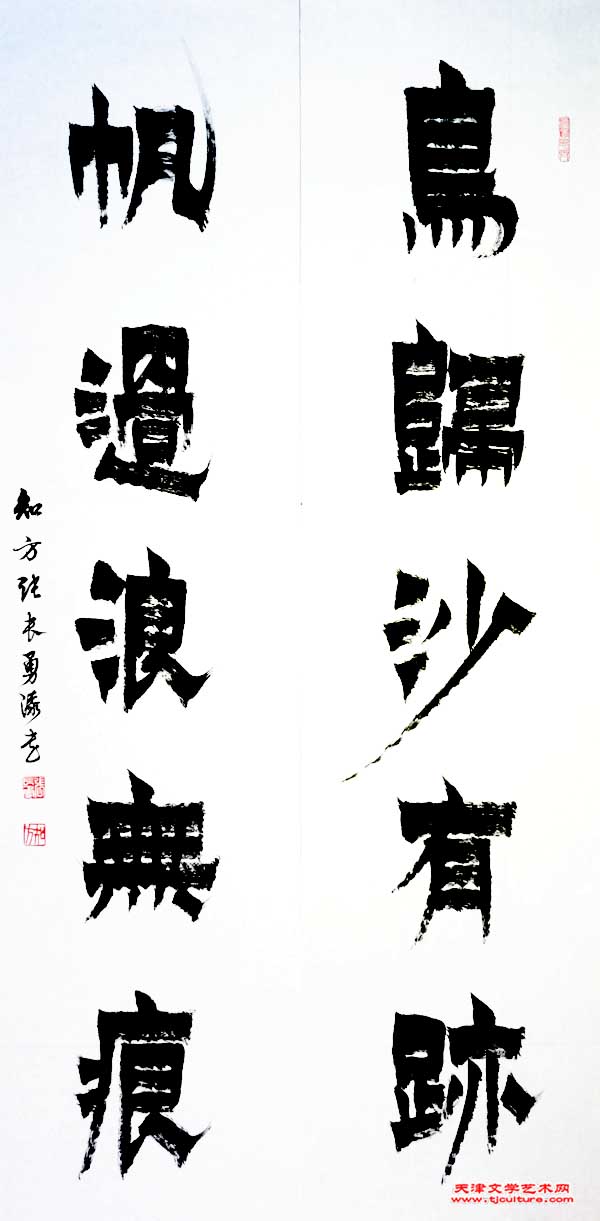 鳥歸沙有跡
帆過浪無痕
知方張長勇添書
天津文学艺术网
www.tjculture.com